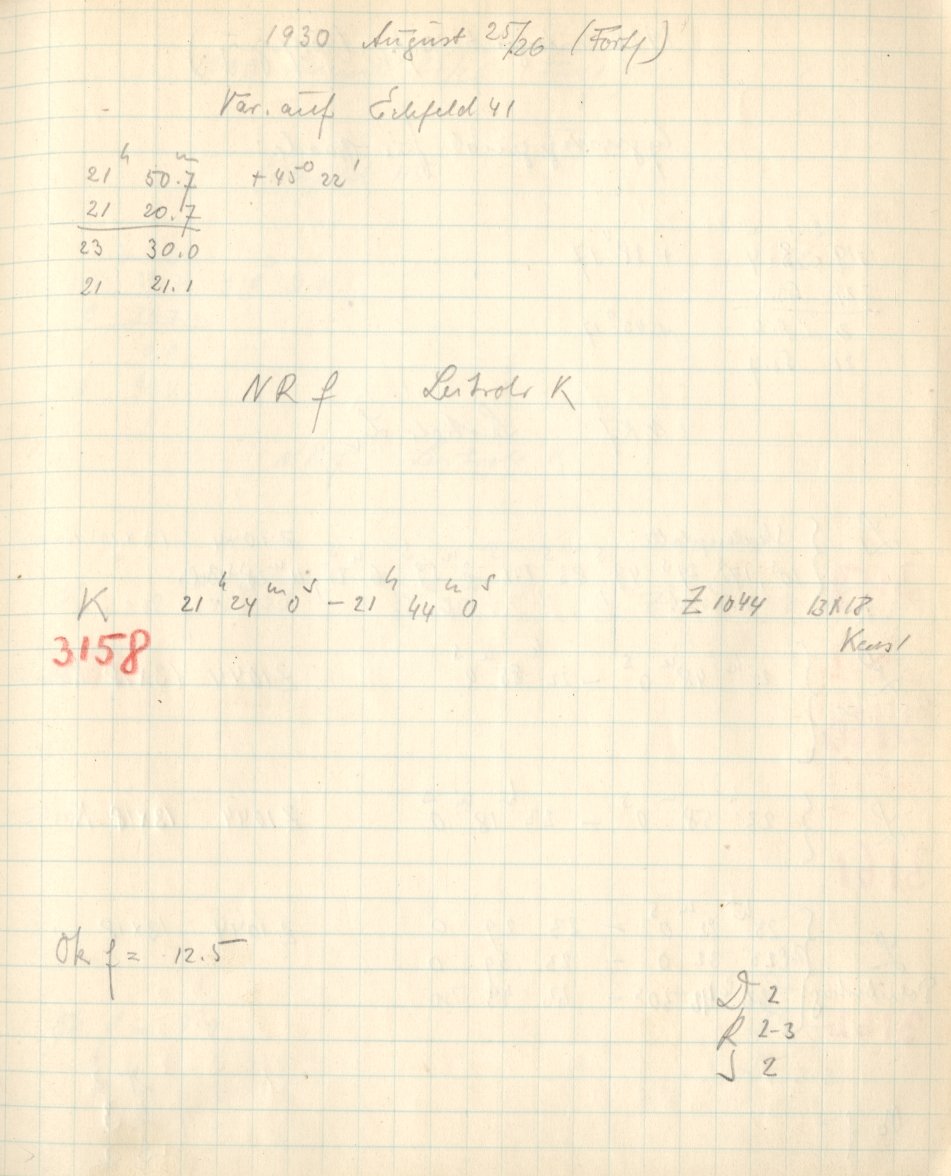 1930 August 25/26 (Forts)
Var. auf Eichfeld 41
21ʰ 50.7ᵐ +45° 22'
21 20.7
23 30.0
21 21.1
NR f Leitrohr K
K 21ʰ 24ᵐ 0ˢ – 21ʰ 44ᵐ 0ˢ Z 1044 13X18
3158
Ok f = 12.5
D 2
R 2-3
S 2